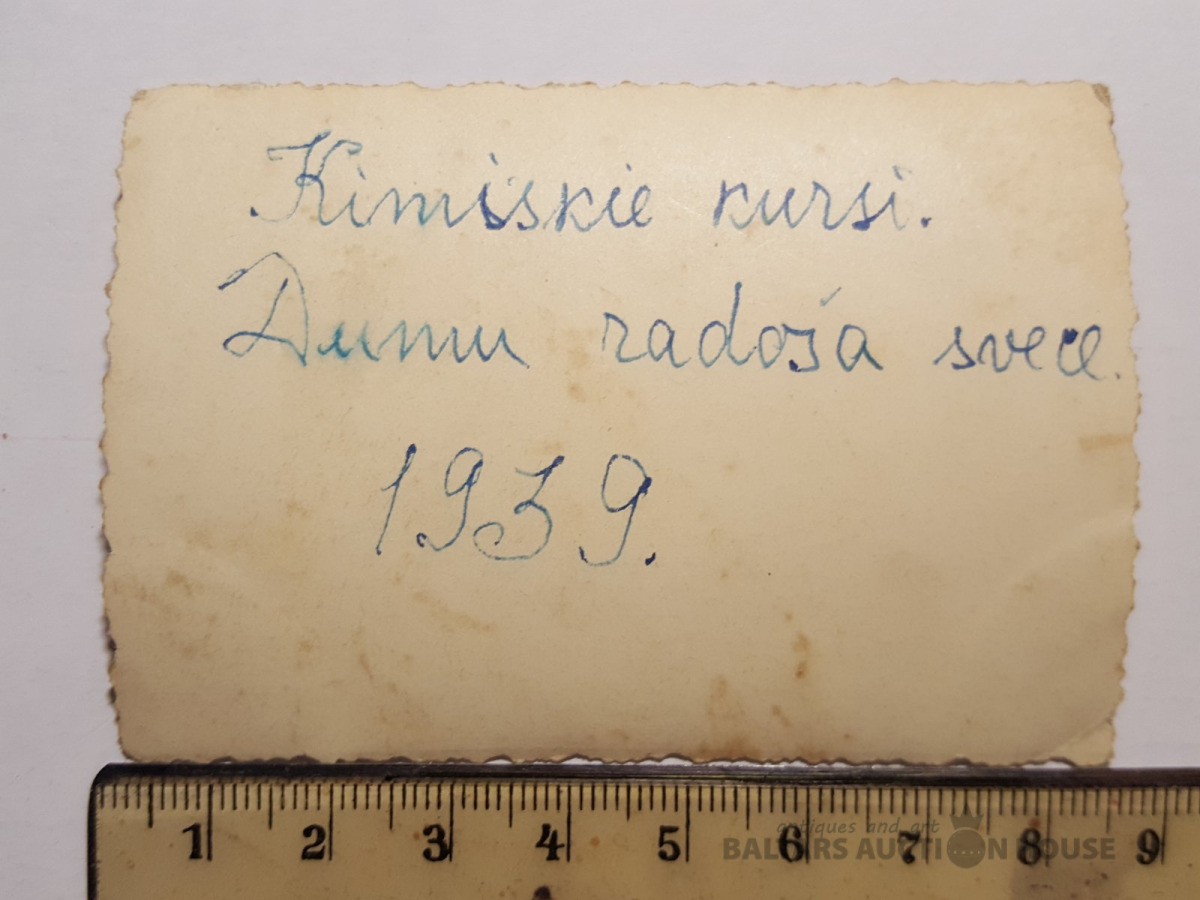 Kimiskie kursi.
Dumu radoša svece.
1939.
1 2 3 4 5 6 7 8 9
antiques and art
BALTARS AUCTION HOUSE